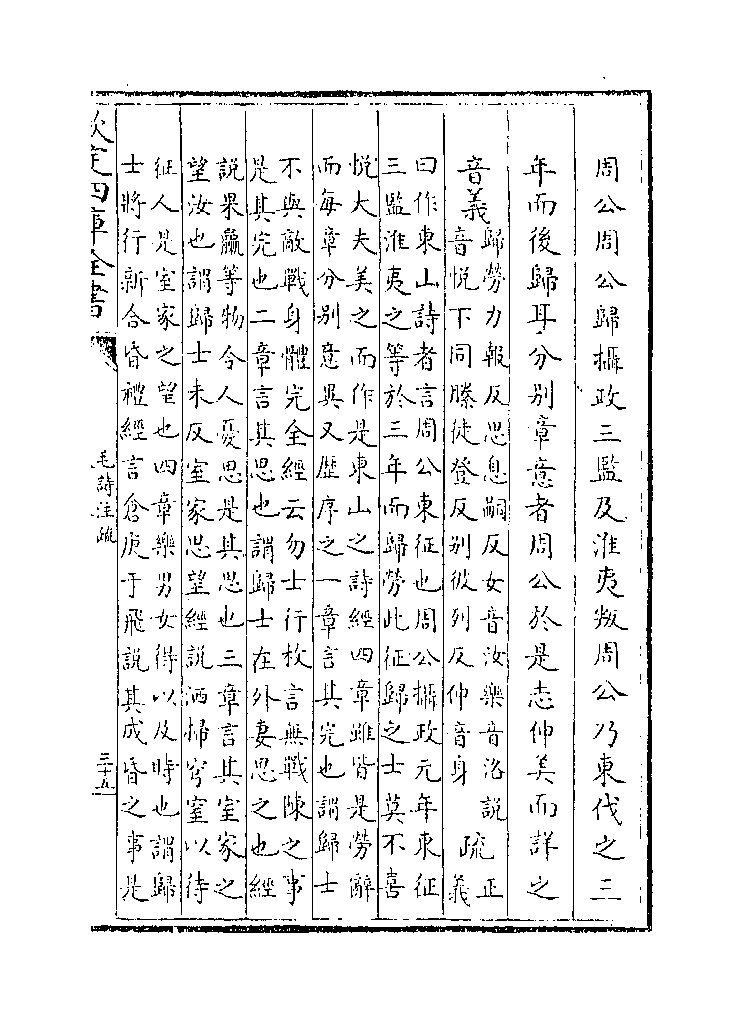 周公周公歸攝政三監及淮夷叛周公乃東伐之三
年而後歸耳分别章意者周公於是志伸美而詳之
音義
歸勞力報反思息嗣反女音汝樂音洛說
音悦下同縢徒登反别彼列反伸音身
疏
正
義
曰作東山詩者言周公東征也周公攝政元年東征
三監淮夷之等於三年而歸勞此征歸之士莫不喜
悦大夫美之而作是東山之詩經四章雖皆是勞辭
而每章分别意異又歴序之一章言其完也謂歸士
不與敵戰身體完全經云勿士行枚言無戰陳之事
是其完也二章言其思也謂歸士在外妻思之也經
說果臝等物令人憂思是其思也三章言其室家之
望汝也謂歸士未反室家思望經說洒掃穹窒以待
征人是室家之望也四章樂男女得以及時也謂歸
士將行新合昏禮經言倉庚于飛說其成昏之事是
欽定四庫全書
毛詩注疏
三十五